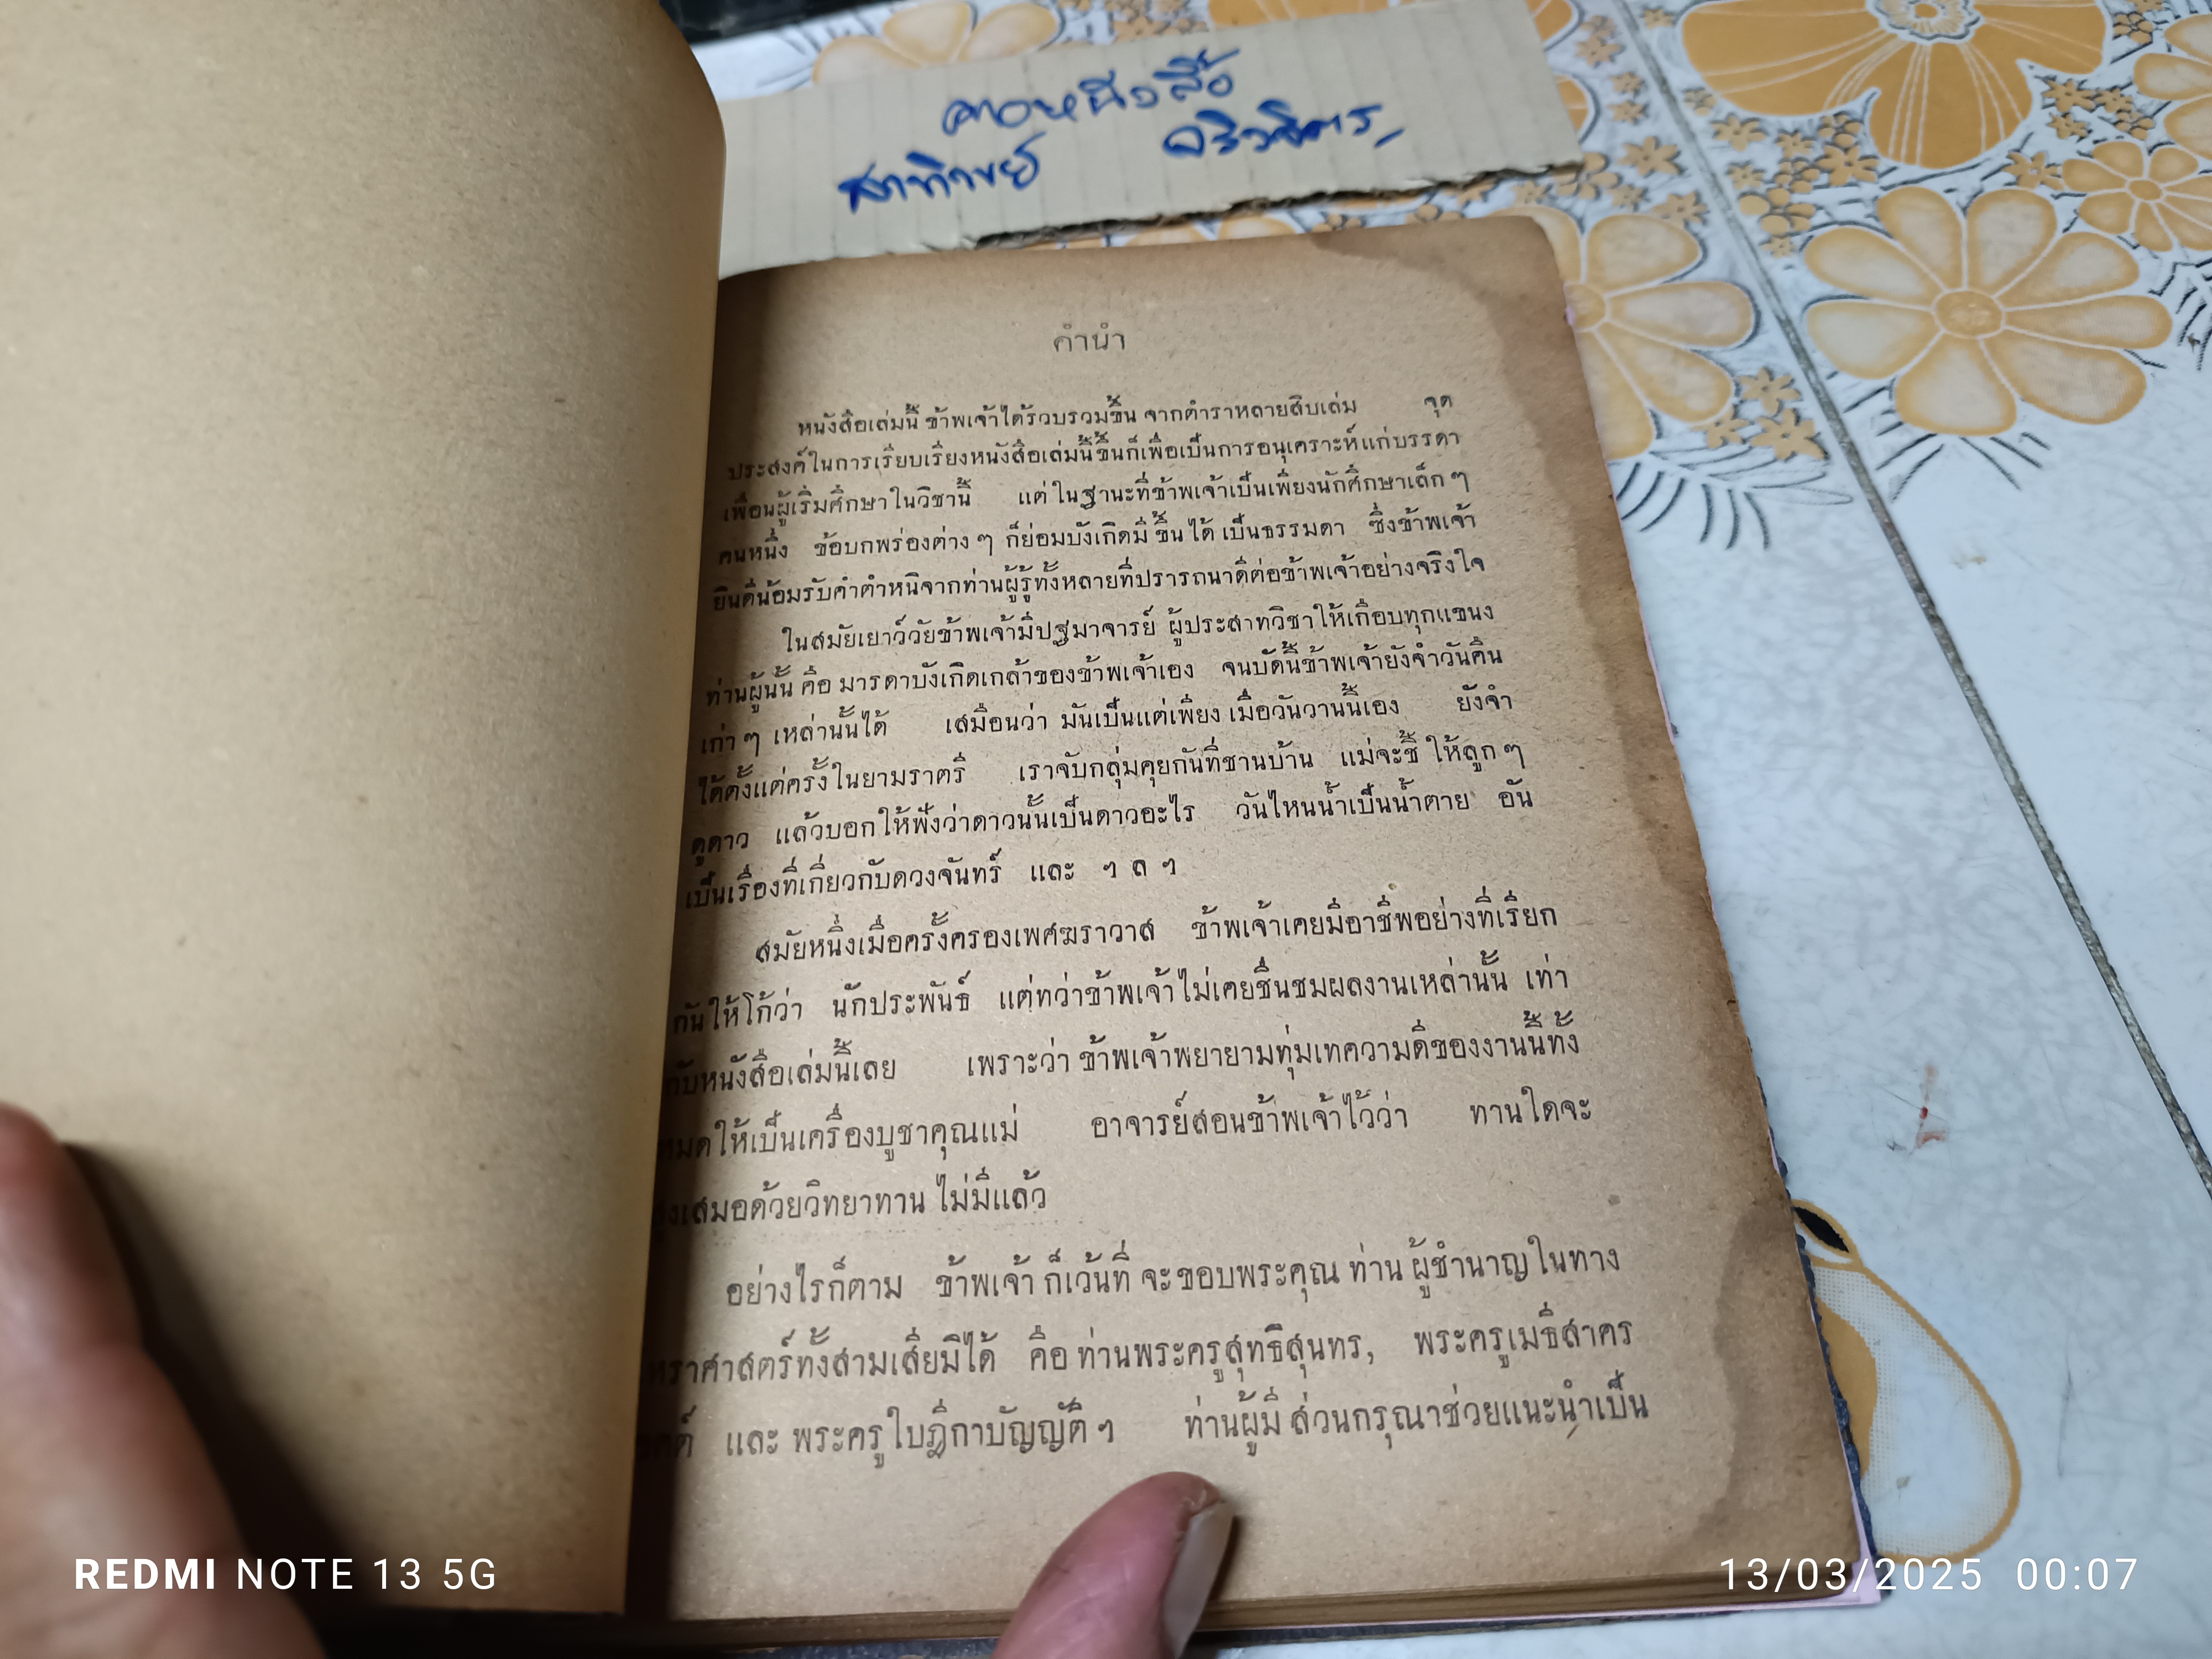 สาทิพย์
คำนำ
หนังสือเล่มนี้ ข้าพเจ้าได้รวบรวมขึ้น จากตำราหลายสิบเล่ม จุด
ประสงค์ในการเรียบเรียงหนังสือเล่มนี้ขึ้นก็เพื่อเป็นการอนุเคราะห์แก่บรรดา
เพื่อนผู้เริ่มศึกษาในวิชานี้ แต่ในฐานะที่ข้าพเจ้าเป็นเพียงนักศึกษาเล็ก ๆ
คนหนึ่ง ข้อบกพร่องต่าง ๆ ก็ย่อมบังเกิดมีขึ้นได้ เป็นธรรมดา ซึ่งข้าพเจ้า
ยินดีน้อมรับคำตำหนิจากท่านผู้รู้ทั้งหลายที่ปรารถนาดีต่อข้าพเจ้าอย่างจริงใจ
ในสมัยเยาว์วัยข้าพเจ้ามีปฐมาจารย์ ผู้ประสาทวิชาให้เกือบทุกแขนง
ท่านผู้นั้น คือ มารดาบังเกิดเกล้าของข้าพเจ้าเอง จนบัดนี้ข้าพเจ้ายังจำวันคืน
เก่า ๆ เหล่านั้นได้ เสมือนว่า มันเป็นแต่เพียง เมื่อวันวานนี้เอง ยังจำ
ได้ตั้งแต่ครั้งในยามราตรี เราจับกลุ่มคุยกันที่ชานบ้าน แม่จะชี้ ให้ลูก ๆ
ดูดาว แล้วบอกให้ฟังว่าดาวนั้นเป็นดาวอะไร วันไหนน้ำเป็นน้ำตาย อัน
เป็นเรื่องที่เกี่ยวกับดวงจันทร์ และ ๆ ล ๆ
สมัยหนึ่งเมื่อครั้งครองเพศฆราวาส ข้าพเจ้าเคยมีอาชีพอย่างที่เรียก
กันให้โก้ว่า นักประพันธ์ แต่ทว่าข้าพเจ้าไม่เคยชื่นชมผลงานเหล่านั้น เท่า
กับหนังสือเล่มนี้เลย เพราะว่า ข้าพเจ้าพยายามทุ่มเทความดีของงานนี้ทั้ง
หมดให้เป็นเครื่องบูชาคุณแม่ อาจารย์สอนข้าพเจ้าไว้ว่า ทานใดจะ
เสมอด้วยวิทยาทาน ไม่มีแล้ว
อย่างไรก็ตาม ข้าพเจ้า ก็เว้นที่ จะขอบพระคุณ ท่าน ผู้ชำนาญในทาง
หราศาสตร์ทั้งสามเสียมิได้ คือ ท่านพระครูสุทธิสุนทร, พระครูเมธีสาคร
และ พระครูใบฎีกาบัญญัติ ๆ ท่านผู้มี ส่วนกรุณาช่วยแนะนำเป็น
REDMI NOTE 13 5G
13/03/2025 00:07